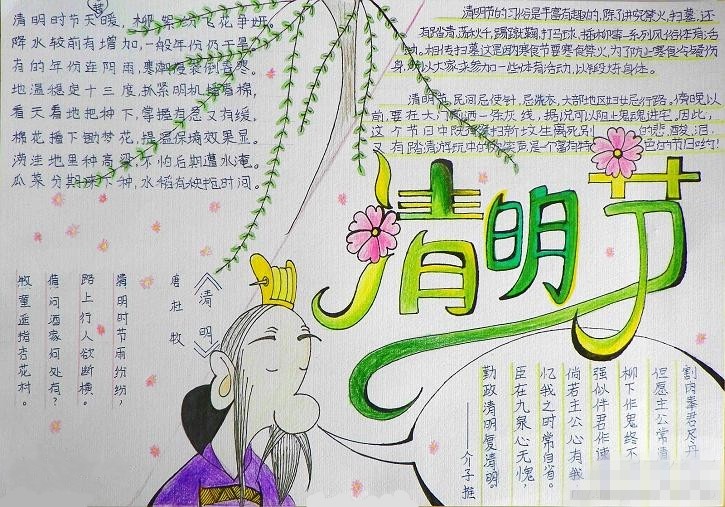 清明时节天暖，柳絮纷飞花争妍。
降水较前有增加，一般年份仍干旱。
有的年份连阴雨，寒潮侵袭倒春寒。
地温稳定十三度，抓紧明机播春棉。
看天看地把种下，掌握有急又有缓。
棉花播下锄梦花，提温保墒效果显。
涝洼地里种高粱，不怕后期遭水淹。
瓜菜分期来下种，水稻育秧抢时间。
清明节的习俗是丰富有趣的，除了讲究禁火、扫墓，还
有踏青、荡秋千、踢蹴鞠、打马球、插柳等一系列风俗体育活
动。相传
身，所以大家来参加一些体育活动，以锻炼身体。
清明节，民间忌使针，忌洗衣，大部地区妇女忌行路。傍晚以
前，要在大门前洒一条灰线，据说可以阻止鬼魂进宅。因此，
这个节日中既有祭扫新坟生离死别的悲酸泪，
又有踏青游玩中的欢笑声，是一个富有特色的节日的！
清明节
《清明》
唐 杜牧
清明时节雨纷纷，
路上行人欲断横。
借问酒家何处有？
牧童遥指杏花村。
割肉奉君尽丹
但愿主公常清
柳下作鬼终不
强似伴君作谏
倘若主公心有我
忆我之时常自省。
臣在九泉心无愧，
勤政清明复清明。
——介子推